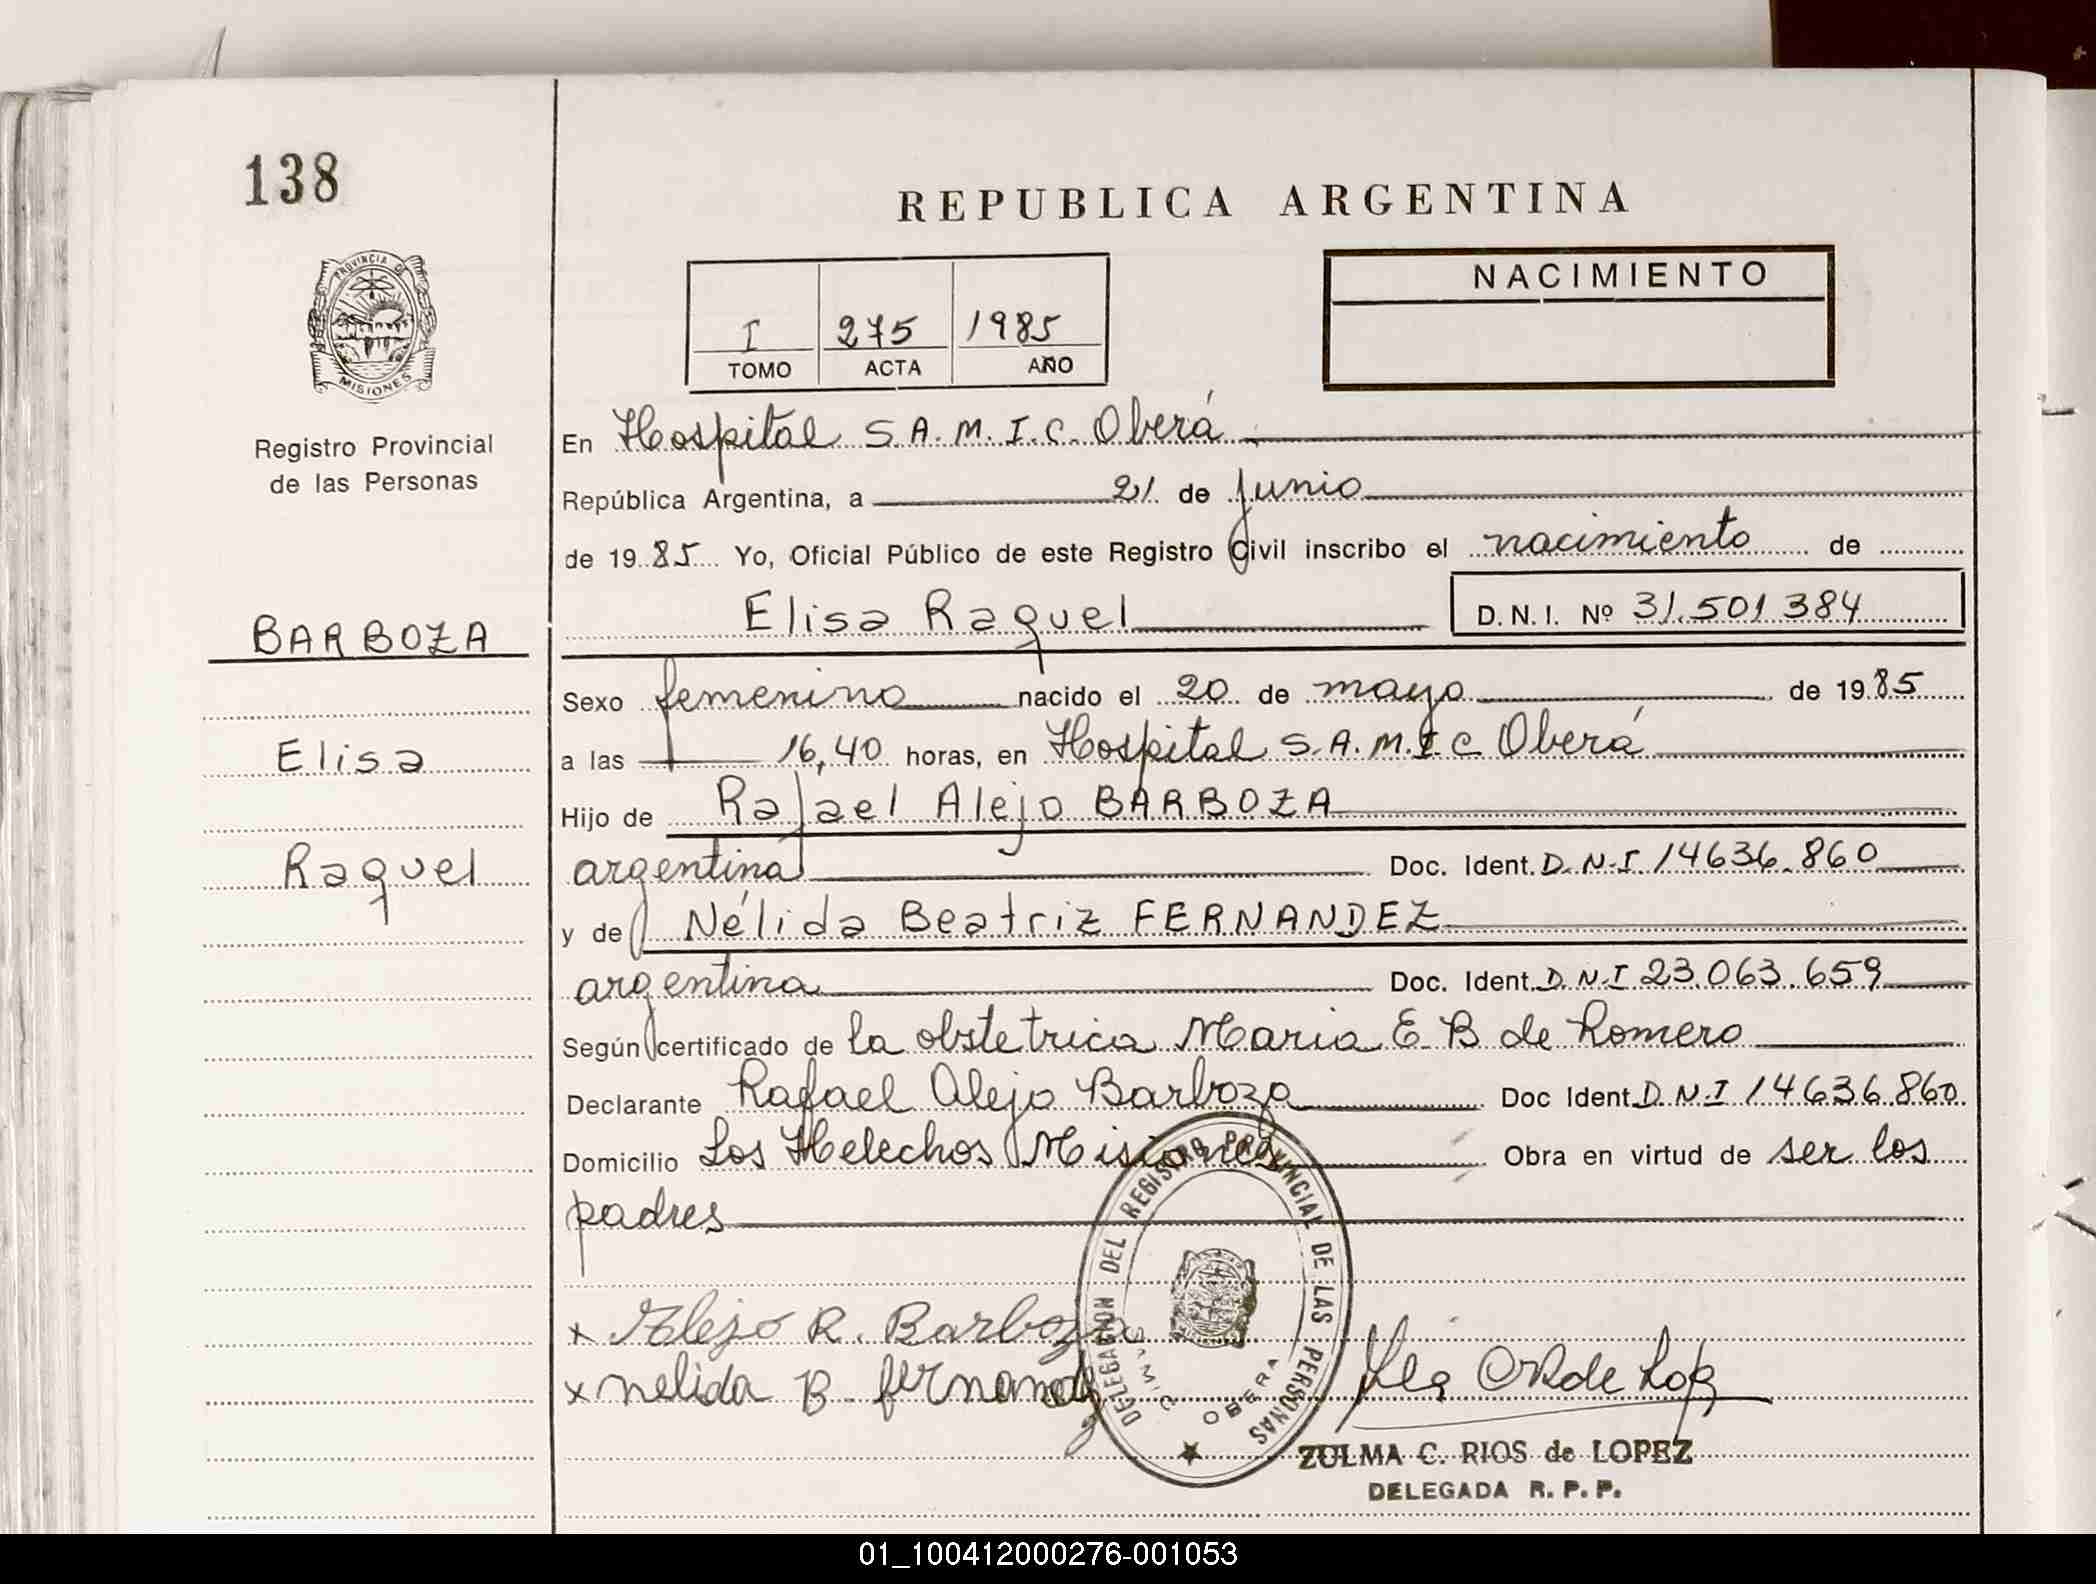 138
REPUBLICA ARGENTINA
PROVINCIA DE
MISIONES
Registro Provincial
de las Personas
I 275 1985
TOMO ACTA AÑO
NACIMIENTO
En Hospital S.A.M.I.C. Oberá
República Argentina, a 21 de Junio
de 1985 Yo, Oficial Público de este Registro Civil inscribo el nacimiento de
BARBOZA
Elisa Raquel D.N.I. Nº 31.501.384
Sexo femenino nacido el 20 de mayo de 1985
Elisa
a las 16,40 horas, en Hospital S.A.M.I.C Oberá
Hijo de Rafael Alejo BARBOZA
Raquel
argentina Doc. Ident. D.N.I. 14636.860
y de Nélida Beatriz FERNANDEZ
argentina Doc. Ident. D.N.I 23.063.659
Según certificado de la obstetrica Maria E. B de Romero
Declarante Rafael Alejo Barboza Doc Ident D.N.I 14636.860
Domicilio Los Helechos Misiones Obra en virtud de ser los
padres
x Alejo R. Barboza
x nelida B. fernandez
DELEGACION DEL REGISTRO PROVINCIAL DE LAS PERSONAS
OBERA
ZULMA C. RIOS de LOPEZ
DELEGADA R. P. P.
01_100412000276-001053